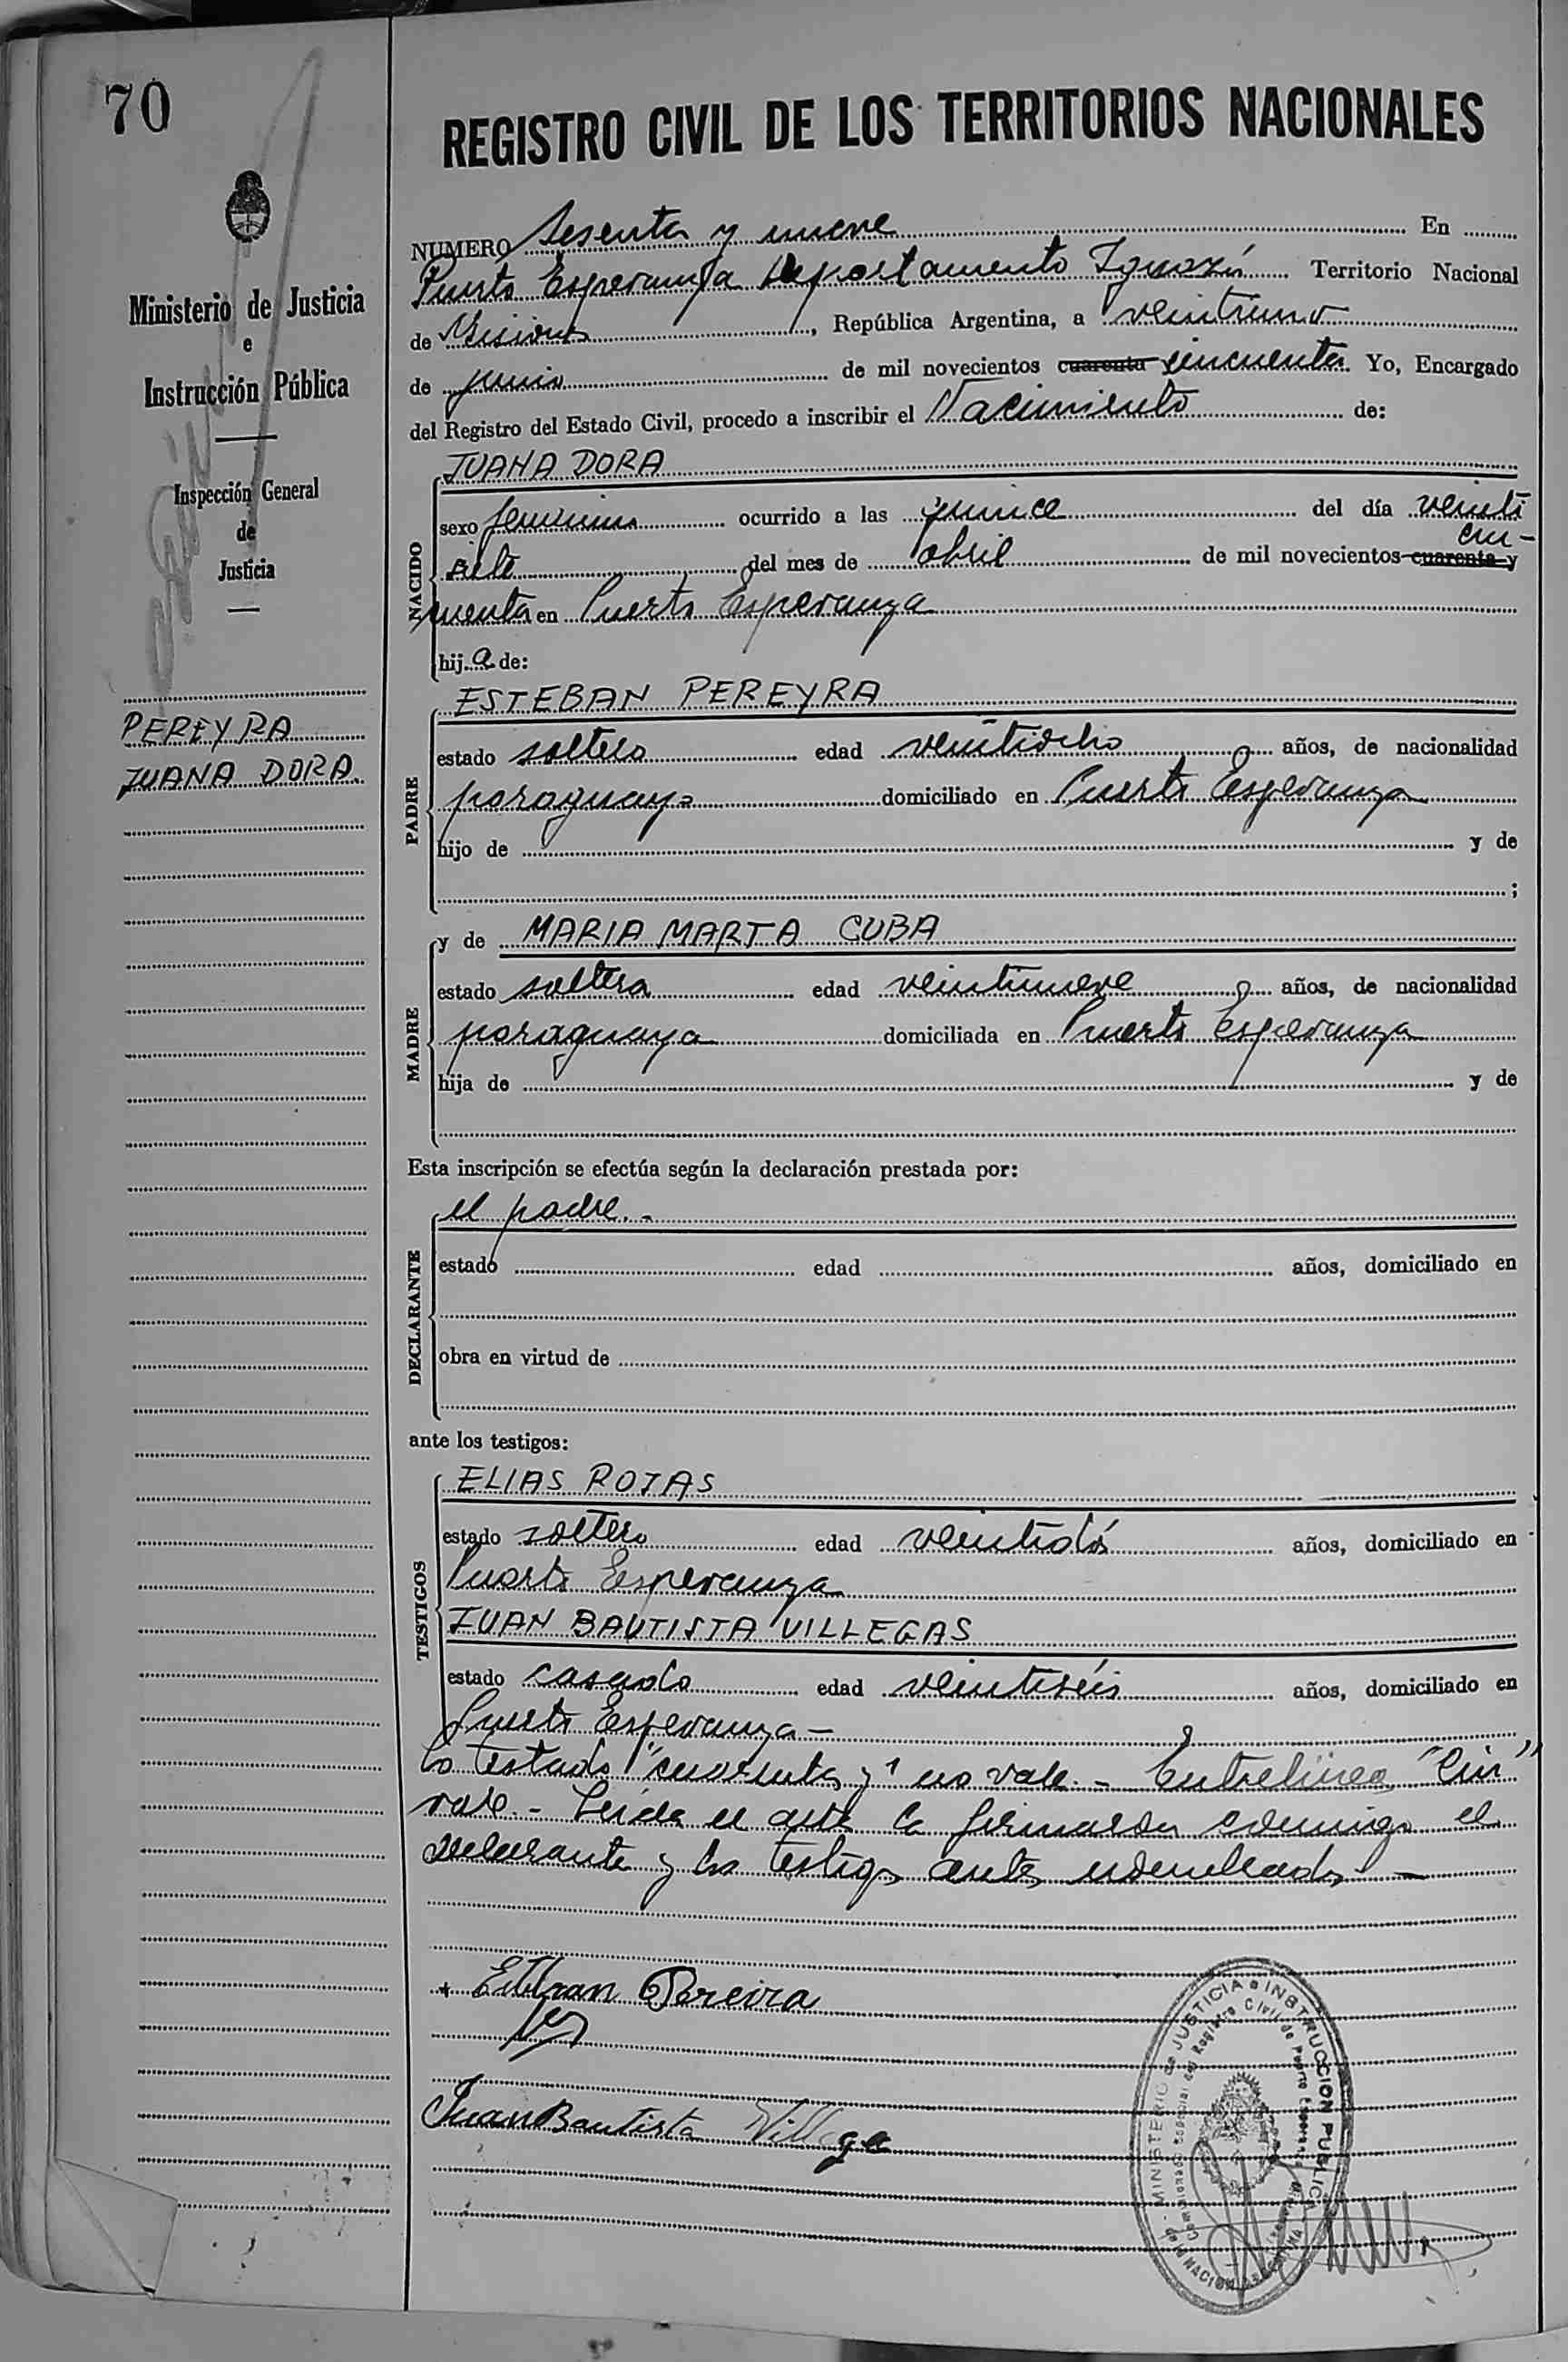 70
REGISTRO CIVIL DE LOS TERRITORIOS NACIONALES
Ministerio de Justicia
e
Instrucción Pública
Inspección General
de
Justicia
PEREYRA
JUANA DORA.
NUMERO Sesenta y nueve En
Puerto Esperanza Departamento Iguazú Territorio Nacional
de Misiones, República Argentina, a veintiuno
de junio de mil novecientos cuarenta cincuenta. Yo, Encargado
del Registro del Estado Civil, procedo a inscribir el Nacimiento de:
NACIDO
JUANA DORA
sexo femenino ocurrido a las quince del día veinti
siete del mes de abril de mil novecientos cuarenta y cin-
cuenta en Puerto Esperanza
hija de:
PADRE
ESTEBAN PEREYRA
estado soltero edad veintiocho años, de nacionalidad
paraguayo domiciliado en Puerto Esperanza
hijo de y de
;
MADRE
y de MARIA MARTA CUBA
estado soltera edad veintinueve años, de nacionalidad
paraguaya domiciliada en Puerto Esperanza
hija de y de
Esta inscripción se efectúa según la declaración prestada por:
DECLARANTE
el padre.-
estado edad años, domiciliado en
obra en virtud de
ante los testigos:
TESTIGOS
ELIAS ROJAS
estado soltero edad veintidós años, domiciliado en
Puerto Esperanza
JUAN BAUTISTA VILLEGAS
estado casado edad veintiséis años, domiciliado en
Puerto Esperanza-
Lo testado "cuarenta y" no vale.- Entrelínea "Cin"
vale.- Leída el acta la firmaron conmigo el
declarante y los testigos antes
Esteban Pereira
Juan Bautista Villega
MINISTERIO de JUSTICIA e INSTRUCCION PUBLICA
de la NACION ARGENTINA
Registro Civil de Puerto Esperanza